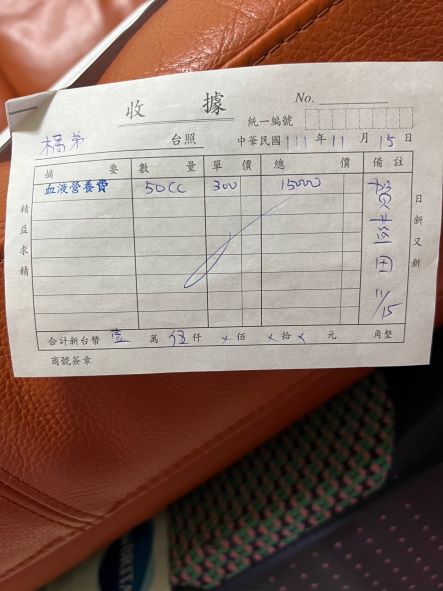 收 據
No.
統一編號
橘弟 台照 中華民國 111 年 11 月 15 日
摘 要 數 量 單 價 總 價 備 註
血液營養費 50CC 300 15000
精益求精
日新又新
11/15
合計新台幣 壹 萬 伍 仟 × 佰 × 拾 × 元 角整
商號簽章